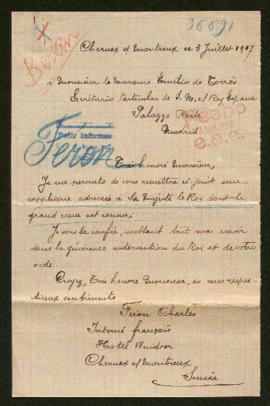 36691
Berlin
Chernex s/ Montreux ce 3 Juillet 1917
à Monsieur le Marquis Emilio de Torrès
Secrétaire Particular de S. M. el Rey
Palazzo Reale
Madrid
Pedir informes
Feron
Très honoré Monsieur,
Je me permets de vous remettre ci-joint une
supplique adressée à Sa Majesté le Roi dont le
grand cœur est connu;
Je vous la confie, mettant tout mon espoir
dans la généreuse intervention du Roi et de votre
aide.
Croyez, Très honoré Monsieur, à mes respec-
tueux sentiments
Féron Charles
Interné français
Hôtel Windsor
Chernex s/ Montreux
Suisse